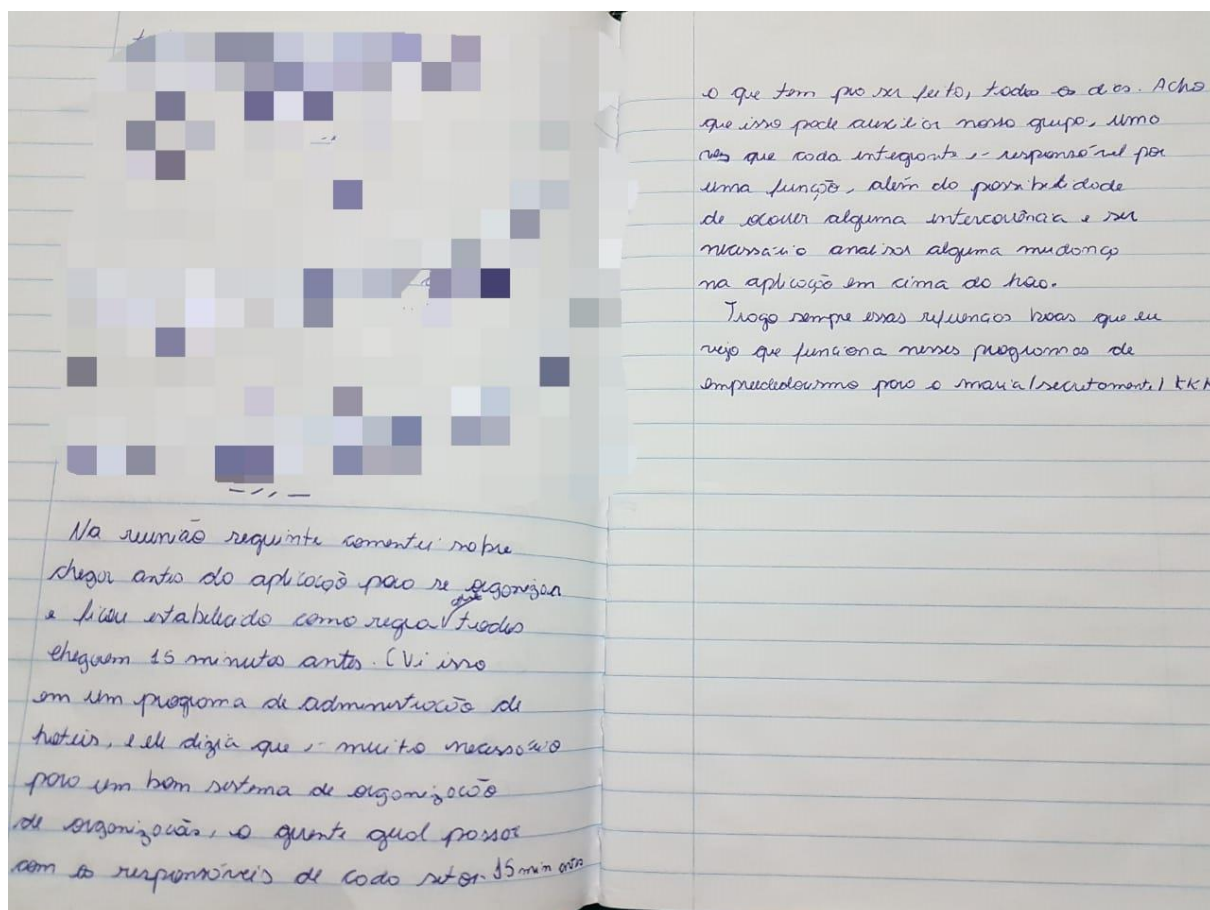 Na reunião seguinte comentei sobre
chegar antes da aplicação para se organizar
e ficou estabelecido como regra que todos
cheguem 15 minutos antes. (Vi isso
em um programa de administração de
hoteis, e ele dizia que é muito necessário
para um bom sistema de organização
de organização, o gerente geral passar
com os responsáveis de cada setor 15 min antes
o que tem pra ser feito, todos os dias. Acho
que isso pode auxiliar nosso grupo, uma
vez que cada integrante é responsável por
uma função, além da possibilidade
de ocorrer alguma intercorrência e ser
necessário analisar alguma mudança
na aplicação em cima da hora.
Trago sempre essas referências boas que eu
vejo que funciona nesses programas de
empreededorismo para o maria (secretamente) KKK